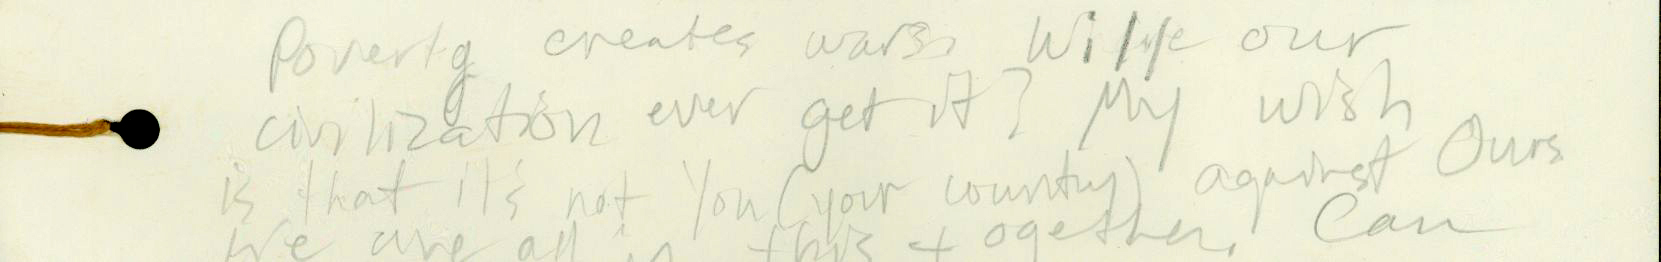 Poverty creates wars. Will our
civilization ever get it? My wish
is that it's not you (your country) against ours
We are all in this together. Can